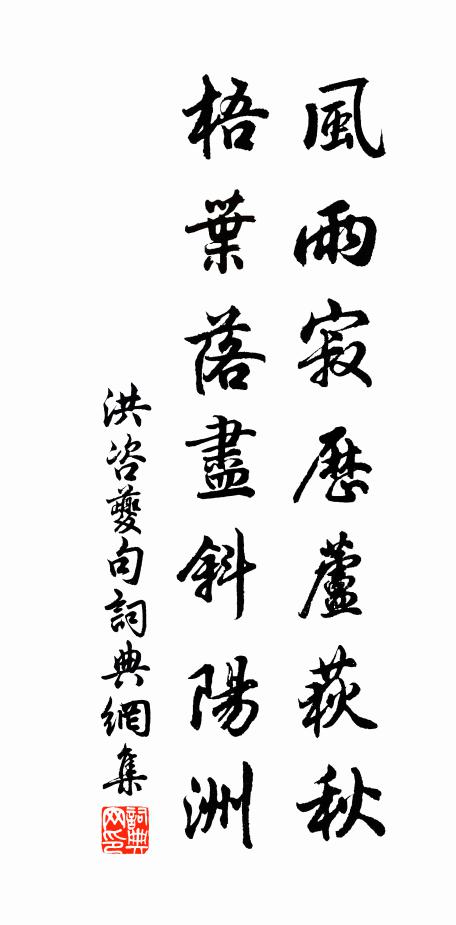 風雨寂歷蘆荻秋
梧葉落盡斜陽洲
洪咨夔句詞典網集
詞典网印